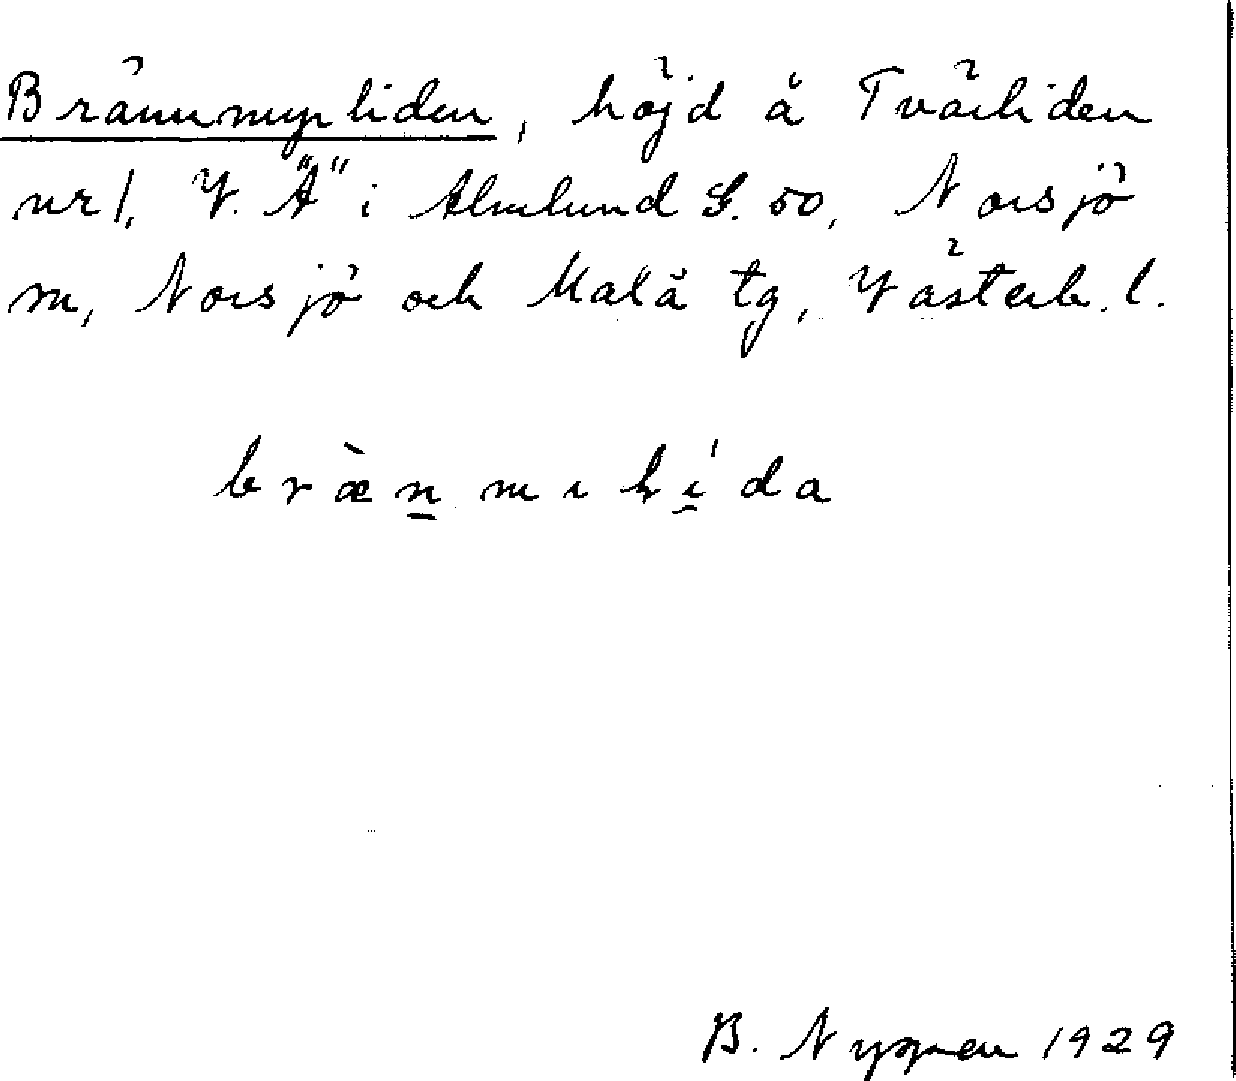 Brännmyrliden, höjd å Tvärliden
nr 1, V. "Å" i Almlund S. 50, Norsjö
sn, Norsjö och Malå tg, Västerb. l.
B. Nygren 1929